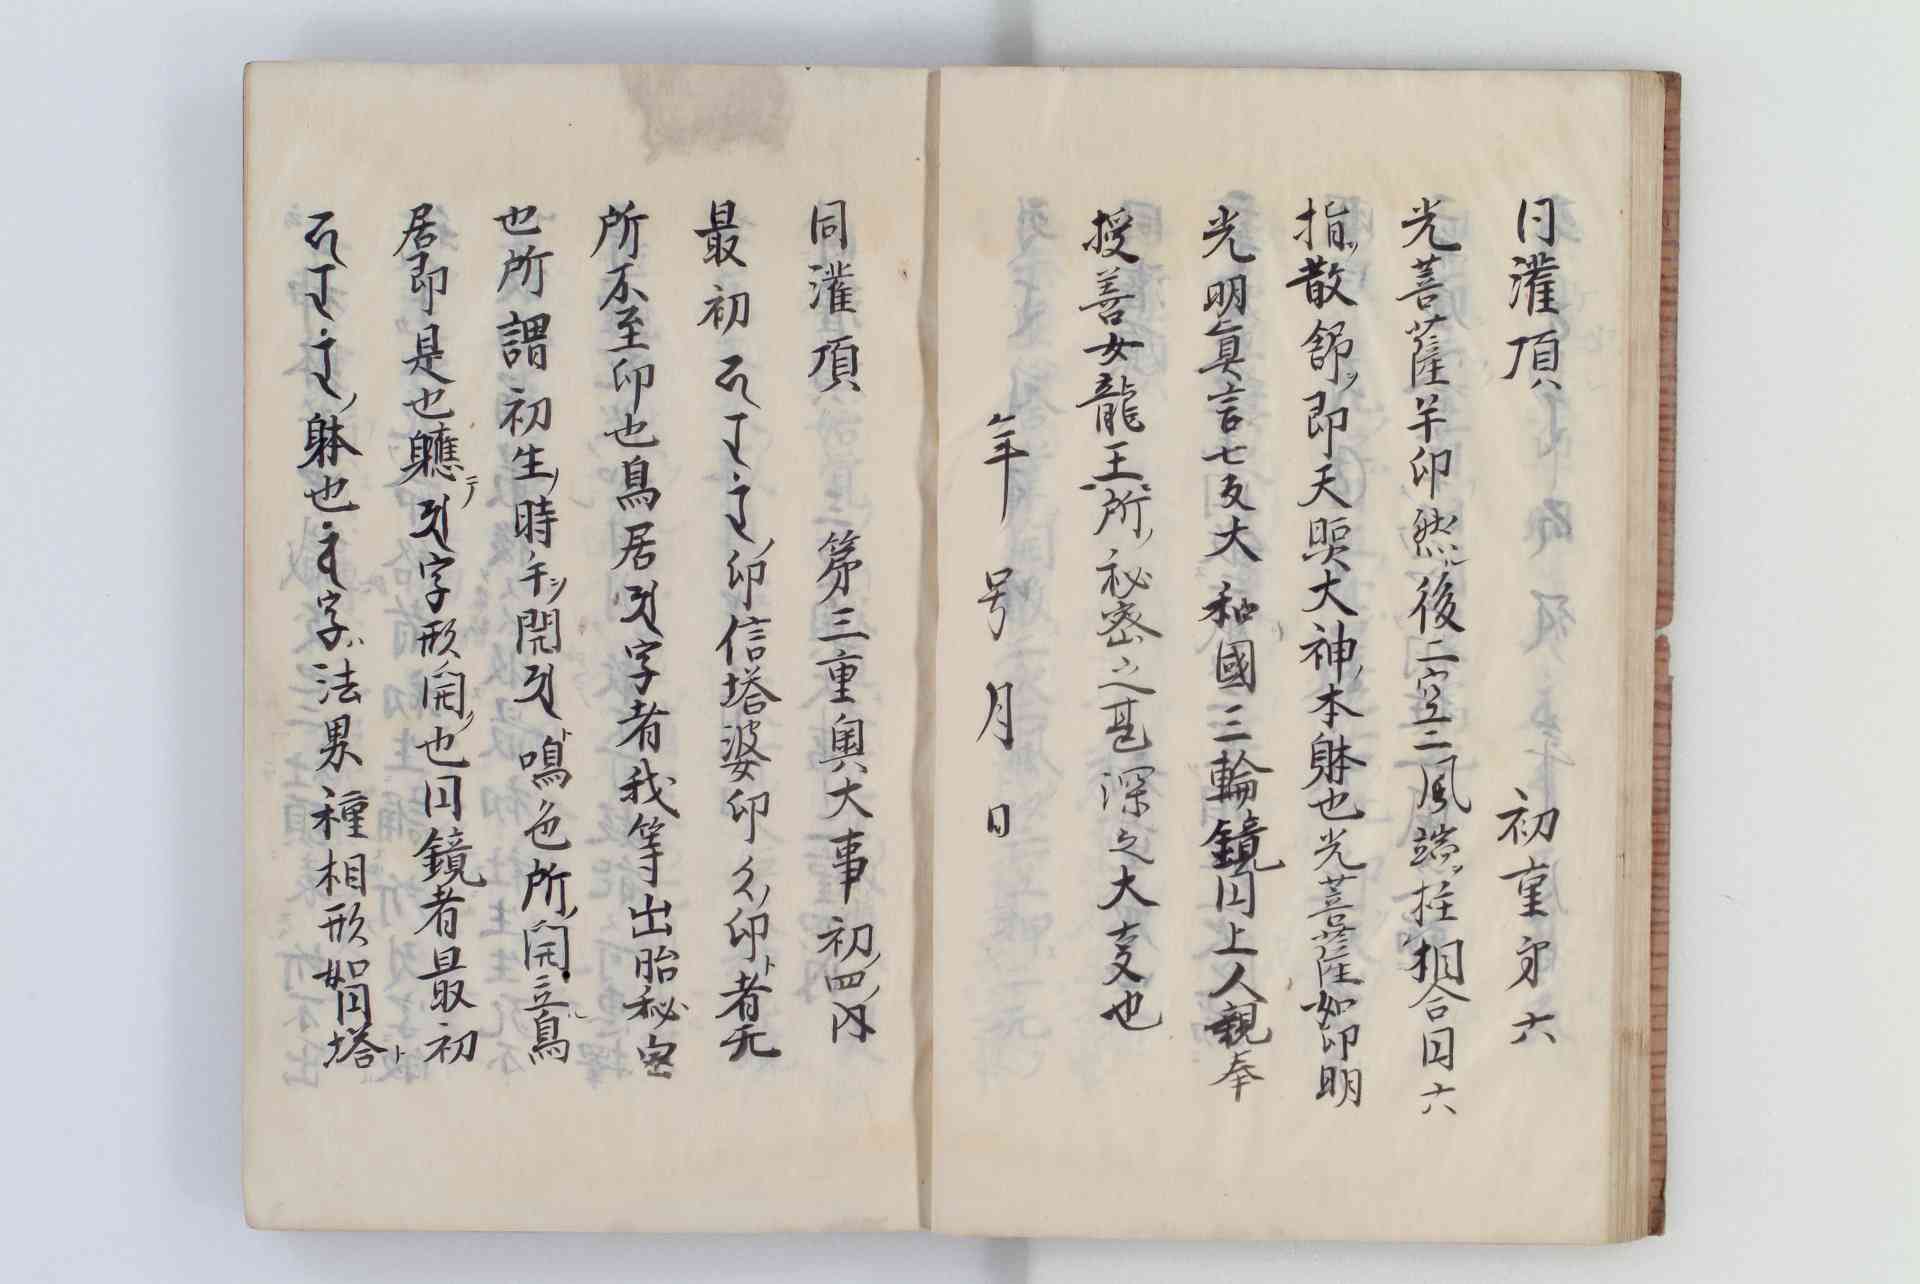 同灌頂 初重 第六
光菩薩羊印然後二空二風端ヲ拄相合円六
指ヲ散舒ソ即天照大神ノ本躰也光菩薩如印明
光明眞言七反大和國三輪鏡円上人親奉
授善女龍王ノ所ノ秘密之甚深之大事也
年号月日
同灌頂 第三重奥大事 初ノ四ノ内
最初 印信塔婆印 印ト者无
所不至印也鳥居 字者我等出胎秘密
也所謂初生ノ時 開 ト鳴色所ノ開立鳥
居即是也軈テ 字形開ノ也円鏡者最初
躰也 字ハ法界種相形如円塔ト